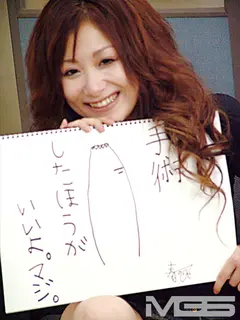 手術
したほうが
いいよ。マジ。
MGS